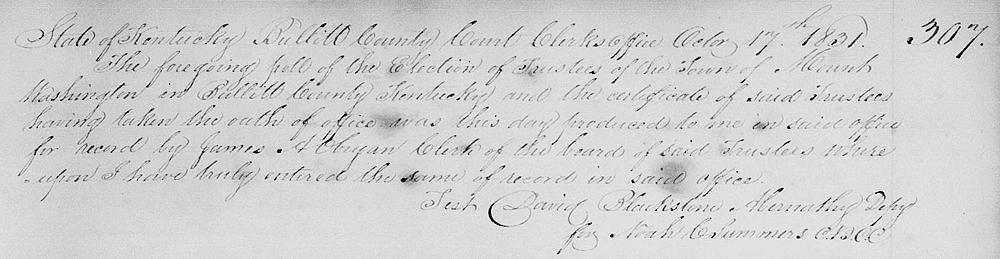 State of Kentucky Bullitt County Court Clerks Office Octor 17th 1831. 307.
The foregoing poll of the Election of Trustees of the Town of Mount
Washington in Bullitt County Kentucky and the certificate of said Trustees
having taken the oath of office was this day produced to me in said office
for record by James A clerk of the board of said Trustees where
-upon I have truly entered the same of record in said office.
Test David Blackstone Abernathy Depy
for Noah C Summers C.B.C.C